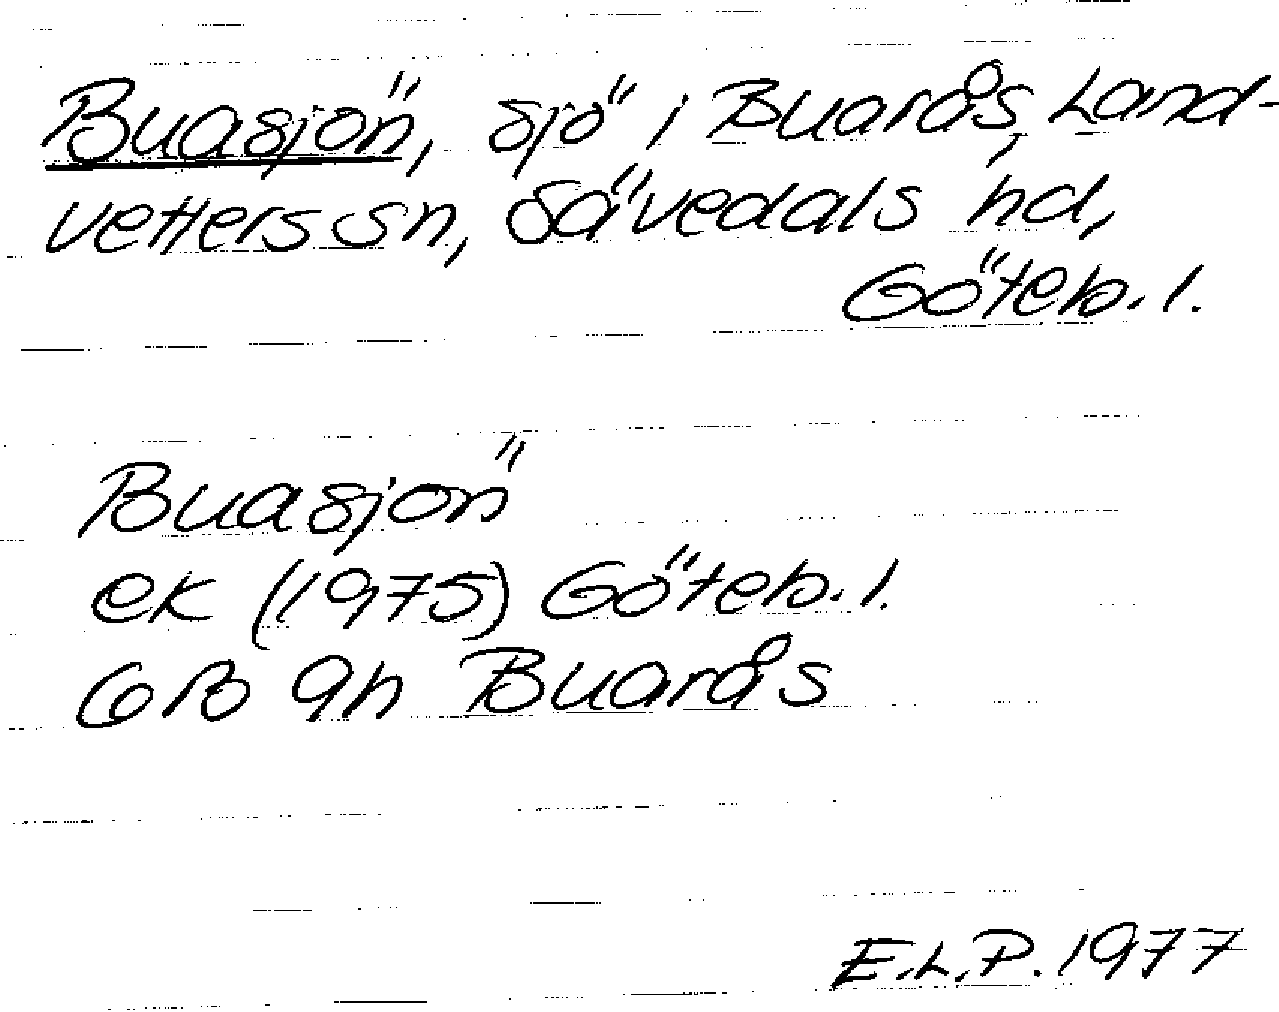 Buasjön, sjö i Buarås, Land-
vetters sn, Sävedals hd,
Göteb. l.
Buasjön
ek (1975) Göteb. l.
6B 9h Buarås
E.L.P. 1977